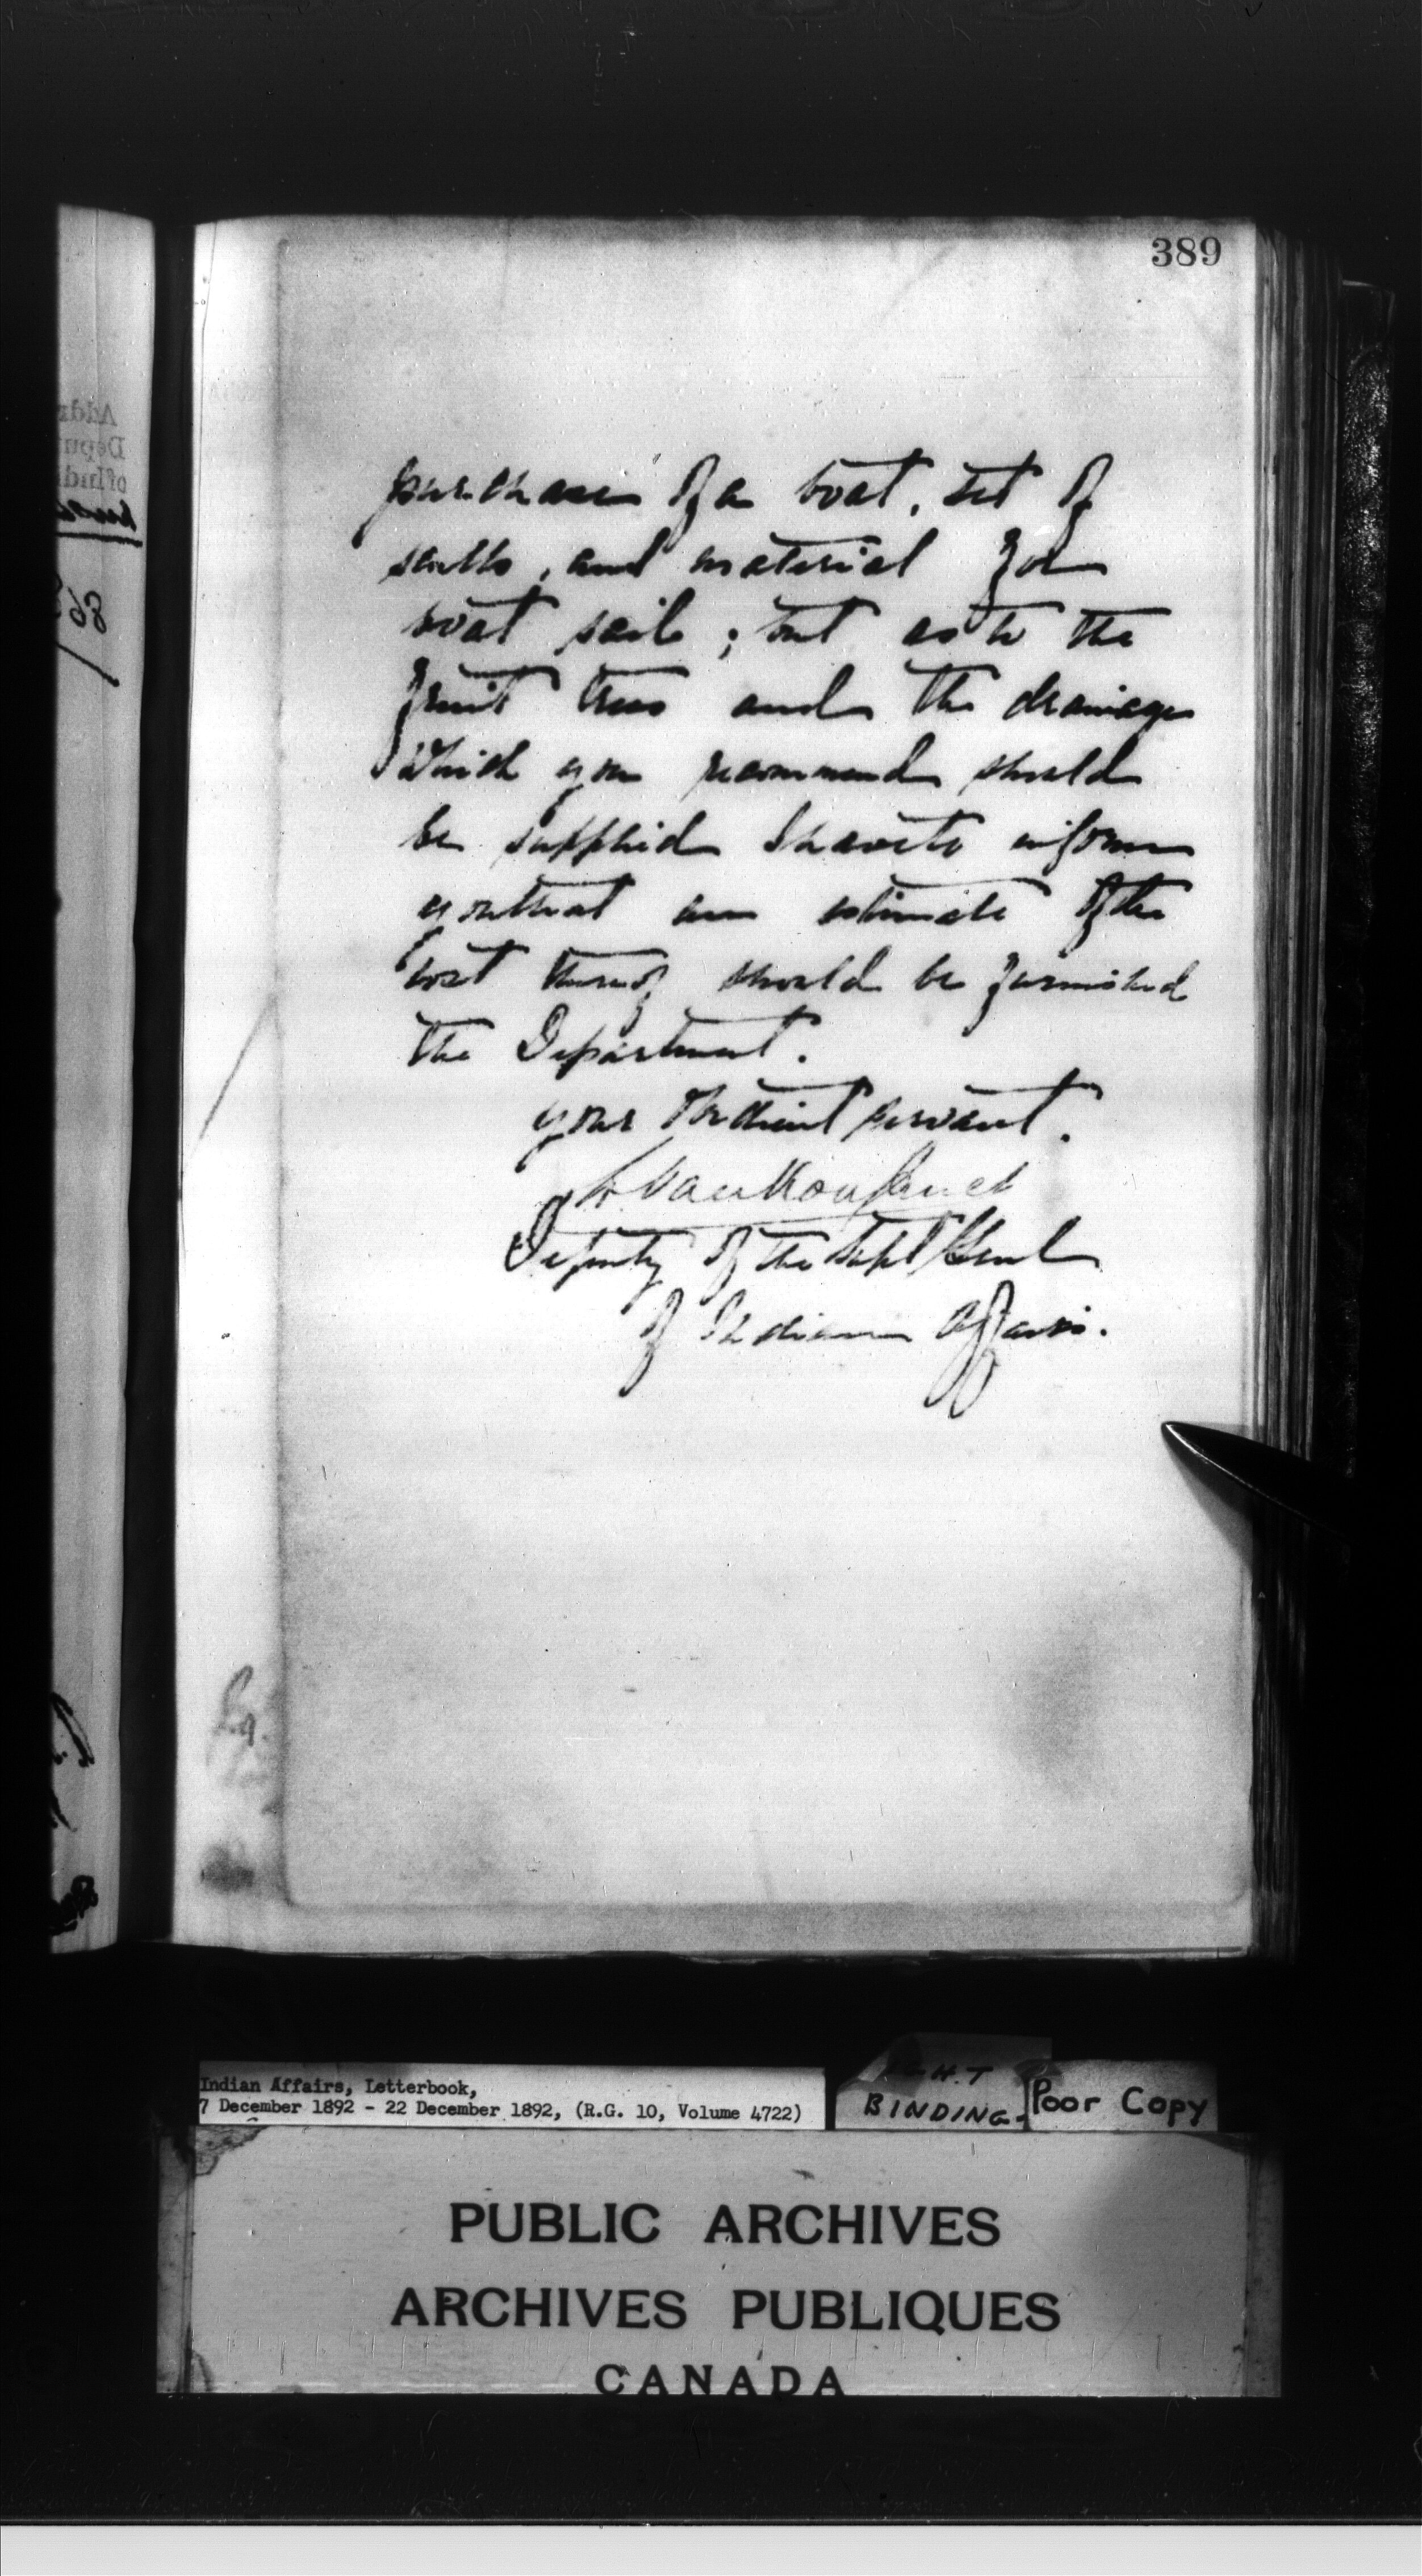 389
purchase of a boat, set of
sculls, and material for
boat sail; but as to the
fruit trees and the drainage
which you recommend should
be supplied I have to inform
you that an estimate of the
cost thereof should be furnished
the Department.
your obedient servant.
L Vankoughnet
Deputy of the Supt Genl
of Indian Affairs.
Indian Affairs, Letterbook,
7 December 1892 - 22 December 1892, (R.G. 10, Volume 4722)
BINDING
Poor Copy
PUBLIC ARCHIVES
ARCHIVES PUBLIQUES
CANADA